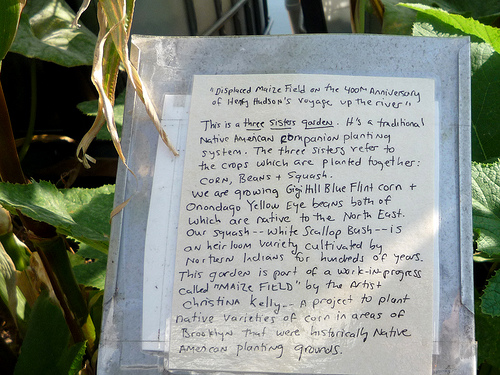 "Displaced Maize Field on the 400th Anniversary
of Henry Hudson's Voyage up the river"
This is a three sisters garden. It's a traditional
Native American companion planting
system. The three sisters refer to
the crops which are planted together:
corn, Beans + Squash.
We are growing Gigi Hill Blue Flint corn +
Onondago Yellow Eye beans both of
which are native to the North East.
Our squash -- White Scallop Bush -- is
an heirloom variety cultivated by
Northern Indians for hundreds of years.
This garden is part of a work-in-progress
called "MAIZE FIELD" by the Artist
Christina Kelly -- A project to plant
native varieties of corn in areas of
Brooklyn that were historically Native
American planting grounds.